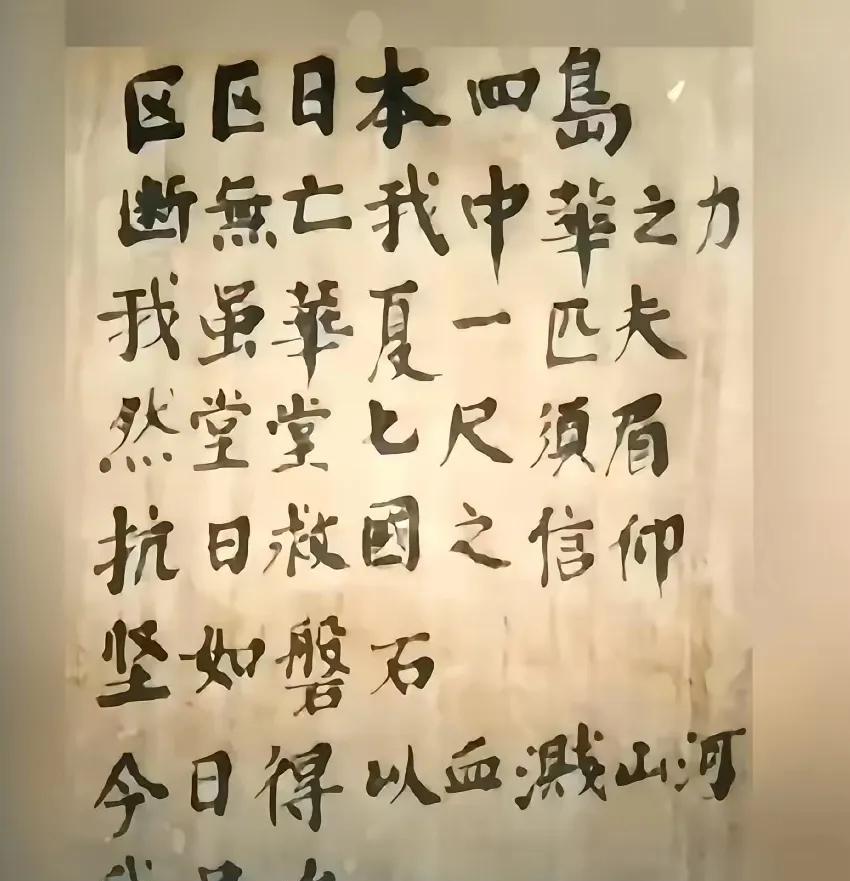 区区日本四島
断無亡我中華之力
我虽華夏一匹夫
然堂堂七尺須眉
抗日救國之信仰
坚如磐石
今日得以血濺山河